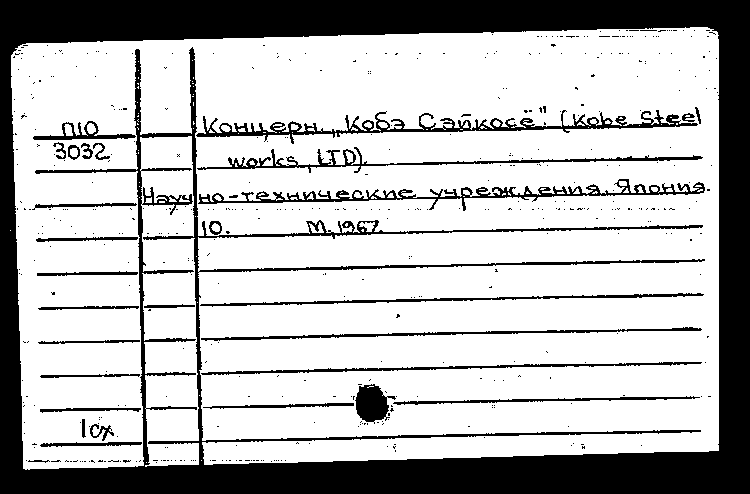 П10
3032
Концерн „Кобэ Сэйкосё". (Kobe Steel
works, LTD).
Научно-технические учреждения. Япония.
10. М., 1967.
1сх